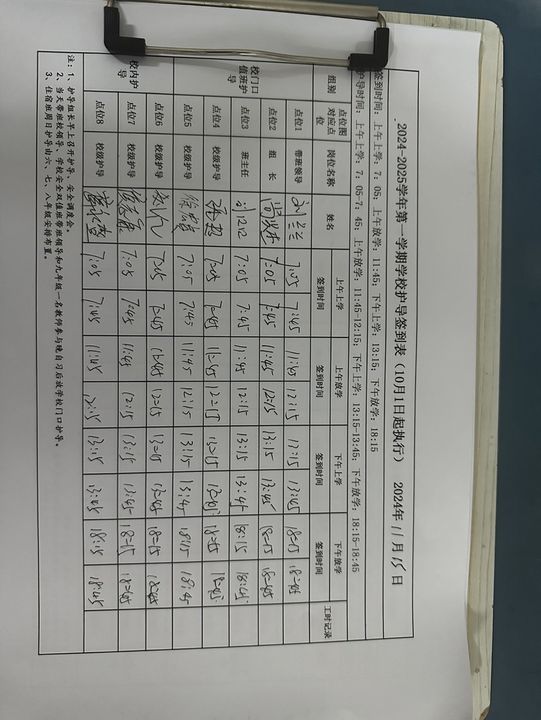 2024-2025学年第一学期学校护导签到表（10月1日起执行） 2024年 11月 15日
签到时间：上午上学：7：05，上午放学：11:45，下午上学：13:15；下午放学：18:15
护导时间：上午上学：7：05-7：45；上午放学：11:45-12:15；下午上学：13:15-13:45；下午放学：18:15-18:45
组别 点位图对应点位 岗位名称 姓名 上午上学签到时间 上午放学签到时间 下午上学签到时间 下午放学签到时间 工时记录
校门口值班护导
点位1 带班领导 刘兰兰 7:05 7:45 11:45 12:15 13:15 13:45 18:15 18:45
点位2 组 长 7:05 7:45 11:45 12:15 13:15 13:45 18:15 18:45
点位3 班主任 7:05 7:45 11:45 12:15 13:15 13:45 18:15 18:45
点位4 校级护导 7:05 7:45 11:45 12:15 13:15 13:45 18:15 18:45
点位5 校级护导 7:05 7:45 11:45 12:15 13:15 13:45 18:15 18:45
校内护导
点位6 校级护导 7:05 7:45 11:45 12:15 13:15 13:45 18:15 18:45
点位7 校级护导 7:05 7:45 11:45 12:15 13:15 13:45 18:15 18:45
点位8 校级护导 7:05 7:45 11:45 12:15 13:15 13:45 18:15 18:45
注：1、护导组长早上召开护导、安全调度会。
2、当天带班校领导、学校安全双值班带班领导和九年级一名教师参与晚自习后放学校门口护导。
3、住宿班周日护导由六、七、八年级安排布置。